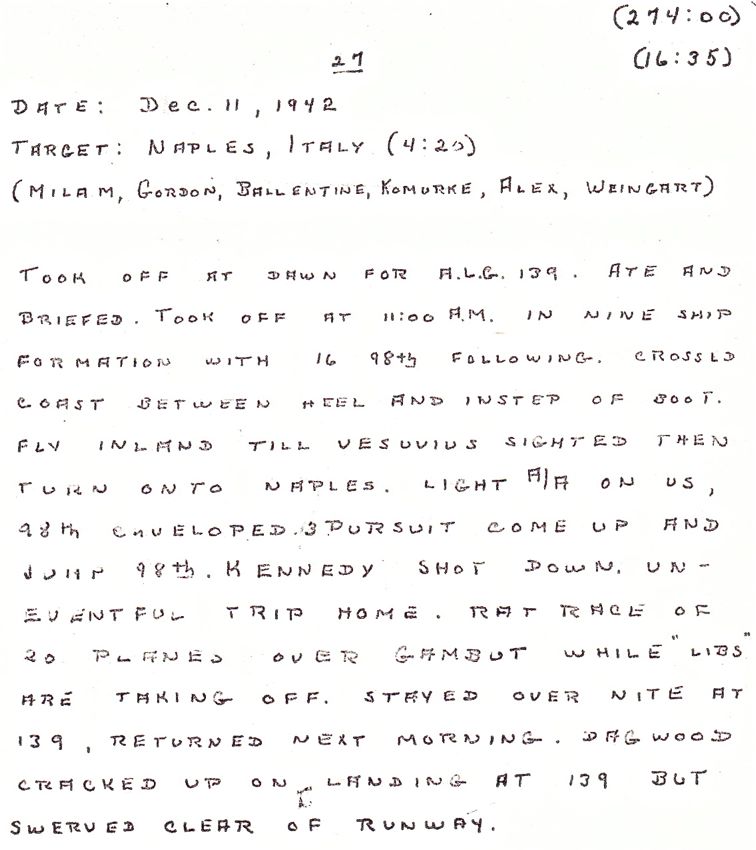 (274:00)
27 (16:35)
DATE: Dec. 11, 1942
TARGET: NAPLES, ITALY (4:20)
(MILAM, GORDON, BALLENTINE, KOMURKE, ALEX, WEINGART)
TOOK OFF AT DAWN FOR A.L.G. 139. ATE AND
BRIEFED. TOOK OFF AT 11:00 A.M. IN NINE SHIP
FORMATION WITH 16 98th FOLLOWING. CROSSED
COAST BETWEEN HEEL AND INSTEP OF BOOT.
FLY INLAND TILL VESUVIUS SIGHTED THEN
TURN ONTO NAPLES. LIGHT A/A ON US,
98th ENVELOPED. 3 PURSUIT COME UP AND
JUMP 98th. KENNEDY SHOT DOWN. UN-
EVENTFUL TRIP HOME. RAT RACE OF
20 PLANES OVER GAMBUT WHILE "LIBS"
ARE TAKING OFF. STAYED OVER NITE AT
139, RETURNED NEXT MORNING. DAGWOOD
CRACKED UP ON LANDING AT 139 BUT
SWERVED CLEAR OF RUNWAY.